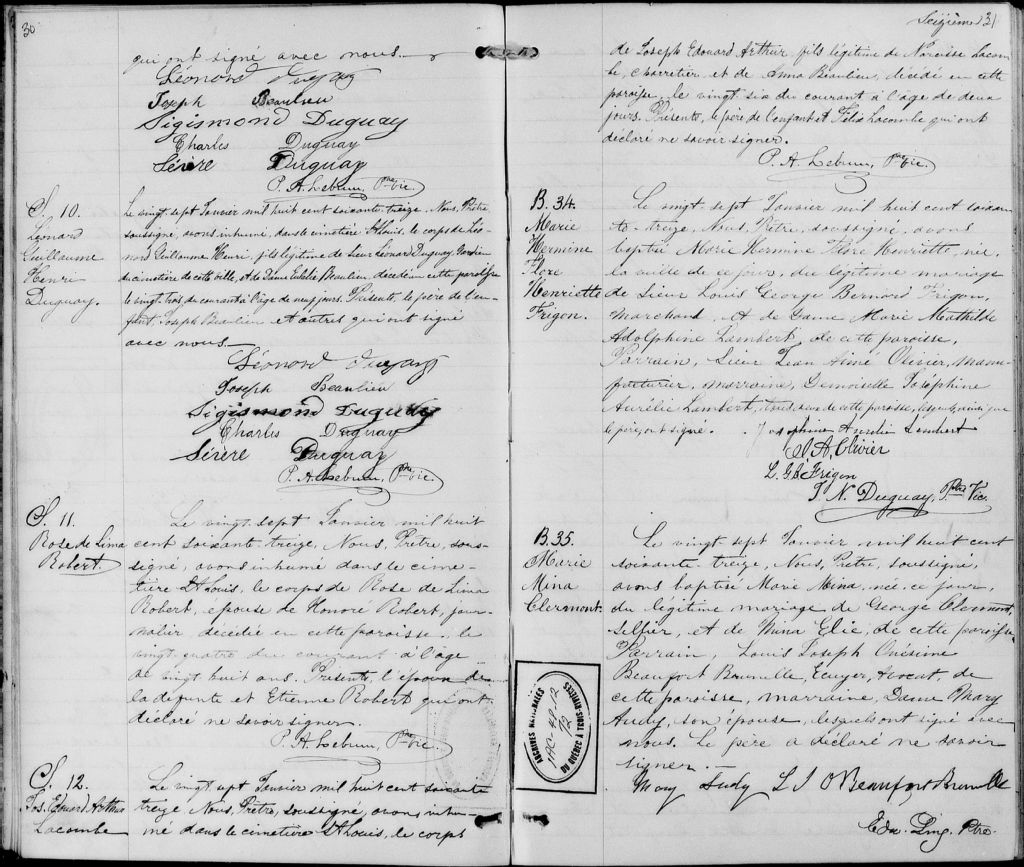 30
qui ont signé avec nous.
Léonard Duguay
Joseph Beaulieu
Sigismond Duguay
Charles Duguay
Sévère Duguay
P. A. Lebrun, Ptre Vic.
S. 10.
Léonard
Guillaume
Henri
Duguay.
Le vingt sept Janvier mil huit cent soixante treize, Nous, Prêtre
soussigné, avons inhumé, dans le cimetière St Louis, le corps de Léo-
nard Guillaume Henri, fils légitime de Sieur Léonard Duguay, Gardien
du cimetière de cette ville, et de Dame Beaulieu, décédé en cette paroisse
le vingt trois du courant à l'âge de neuf jours. Présents, le père de l'en-
fant, Joseph Beaulieu et autres qui ont signé
avec nous
Léonard Duguay
Joseph Beaulieu
Sigismond Duguay
Charles Duguay
Sévère Duguay
P. A. Lebrun, Ptre Vic.
S. 11.
Rose de Lima
Robert.
Le vingt sept Janvier mil huit
cent soixante treize, Nous, Prêtre, sous-
signé, avons inhumé dans le cime-
tière St Louis, le corps de Rose de Lima
Robert, épouse de Honoré Robert, jour-
nalier, décédée en cette paroisse, le
vingt quatre du courant à l'âge
de vingt huit ans. Présents, l'époux de
la défunte et Etienne Robert qui ont
déclaré ne savoir signer.
P. A. Lebrun, Ptre Vic.
S. 12.
Jos. Edouard Arthur
Lacombe
Le vingt sept Janvier mil huit cent soixante
treize, Nous, Prêtre, soussigné, avons inhu-
mé dans le cimetière St Louis, le corps
Seizième 31
de Joseph Edouard Arthur, fils légitime de Narcisse Lacom-
be, charretier, et de Anna Beaulieu, décédé en cette
paroisse, le vingt six du courant à l'âge de deux
jours. Présents, le père de l'enfant et Félix Lacombe qui ont
déclaré ne savoir signer.
P. A. Lebrun, Ptre Vic.
B. 34.
Marie
Hermine
Flore
Henriette
Frigon.
Le vingt sept Janvier mil huit cent soixan-
te-treize, Nous, Prêtre, soussigné, avons
baptisé Marie Hermine Flore Henriette, née
la veille de ce jour, du légitime mariage
de Sieur Louis George Bernard Frigon,
marchand, et de Dame Marie Mathilde
Adolphine Lambert, de cette paroisse,
Parrain, Sieur Jean Aimé Olivier, manu-
facturier, marraine, Demoiselle Joséphine
Aurélie Lambert, tous deux de cette paroisse, lesquels, ainsi que
le père, ont signé. Josephine Aurélie Lambert
J. A. Olivier
L. G. B. Frigon
J. N. Duguay, Ptre Vic.
B. 35.
Marie
Mina
Clermont.
Le vingt sept Janvier mil huit cent
soixante-treize, Nous, Prêtre, soussigné,
avons baptisé Marie Mina, née ce jour,
du légitime mariage de George Clermont,
sellier, et de Mina Elie, de cette paroisse
Parrain, Louis Joseph Onésime
Beaufort Brunelle, Ecuyer, Avocat, de
cette paroisse, marraine, Dame Mary
Judy, son épouse, lesquels ont signé avec
nous. Le père a déclaré ne savoir
signer.
Mary Judy L J O Beaufort Brunelle
Edw. Ling, Ptre.
ARCHIVES NATIONALES
DU QUEBEC A TROIS-RIVIERES